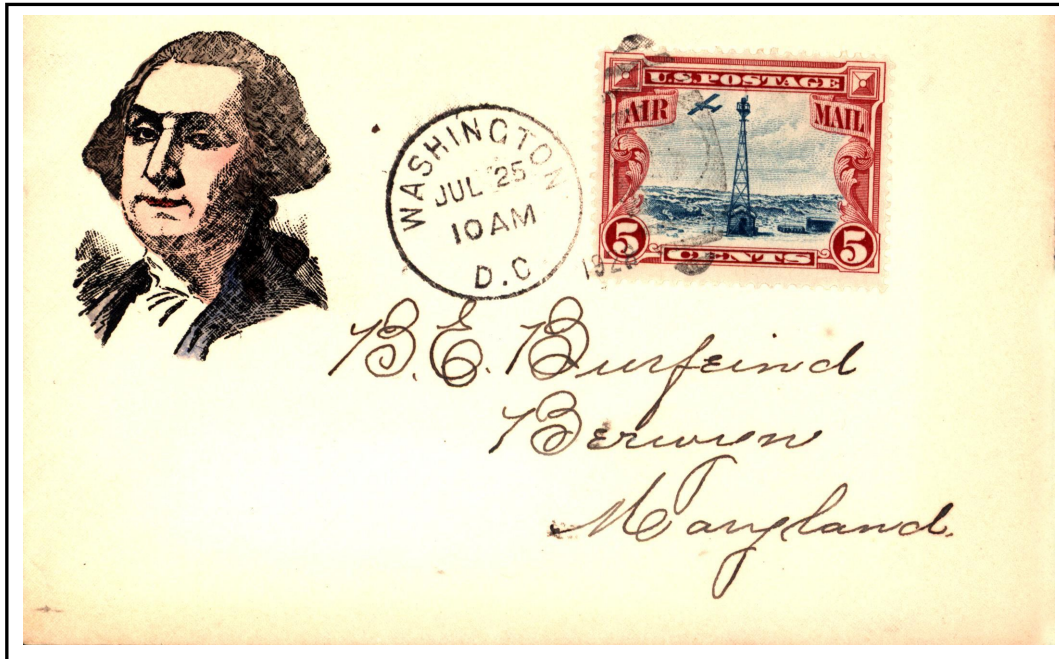 WASHINGTON
JUL 25
10 AM
D.C.
U.S. POSTAGE
AIR MAIL
5 CENTS 5
B.E. Burfeind
Berwyn
Maryland.